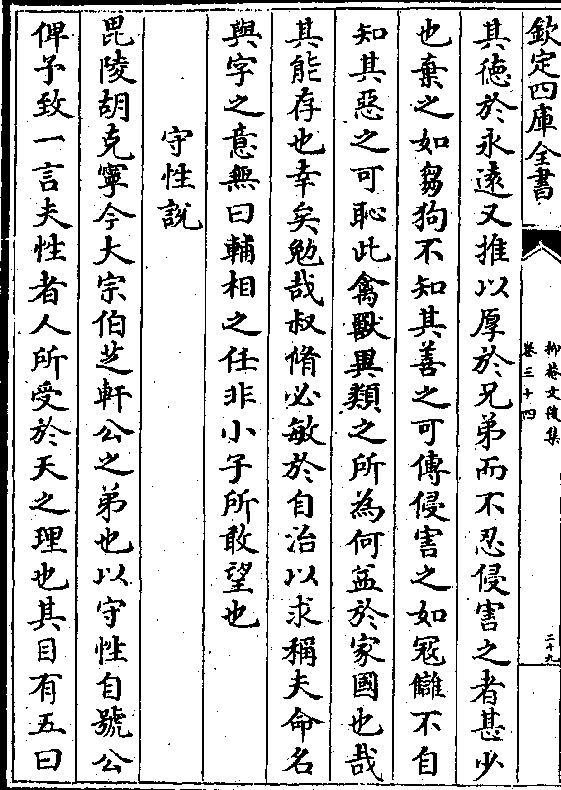 欽定四庫全書
抑菴文後集
卷三十四
二十九
其徳於永逺又推以厚於兄弟而不忍侵害之者甚少
也棄之如芻狗不知其善之可傳侵害之如冦讎不自
知其惡之可恥此禽獸異類之所為何益於家國也哉
其能存也幸矣勉哉叔脩必敏於自治以求稱夫命名
與字之意無曰輔相之任非小子所敢望也
守性説
毘陵胡克寧今大宗伯芝軒公之弟也以守性自號公
俾予致一言夫性者人所受於天之理也其目有五曰